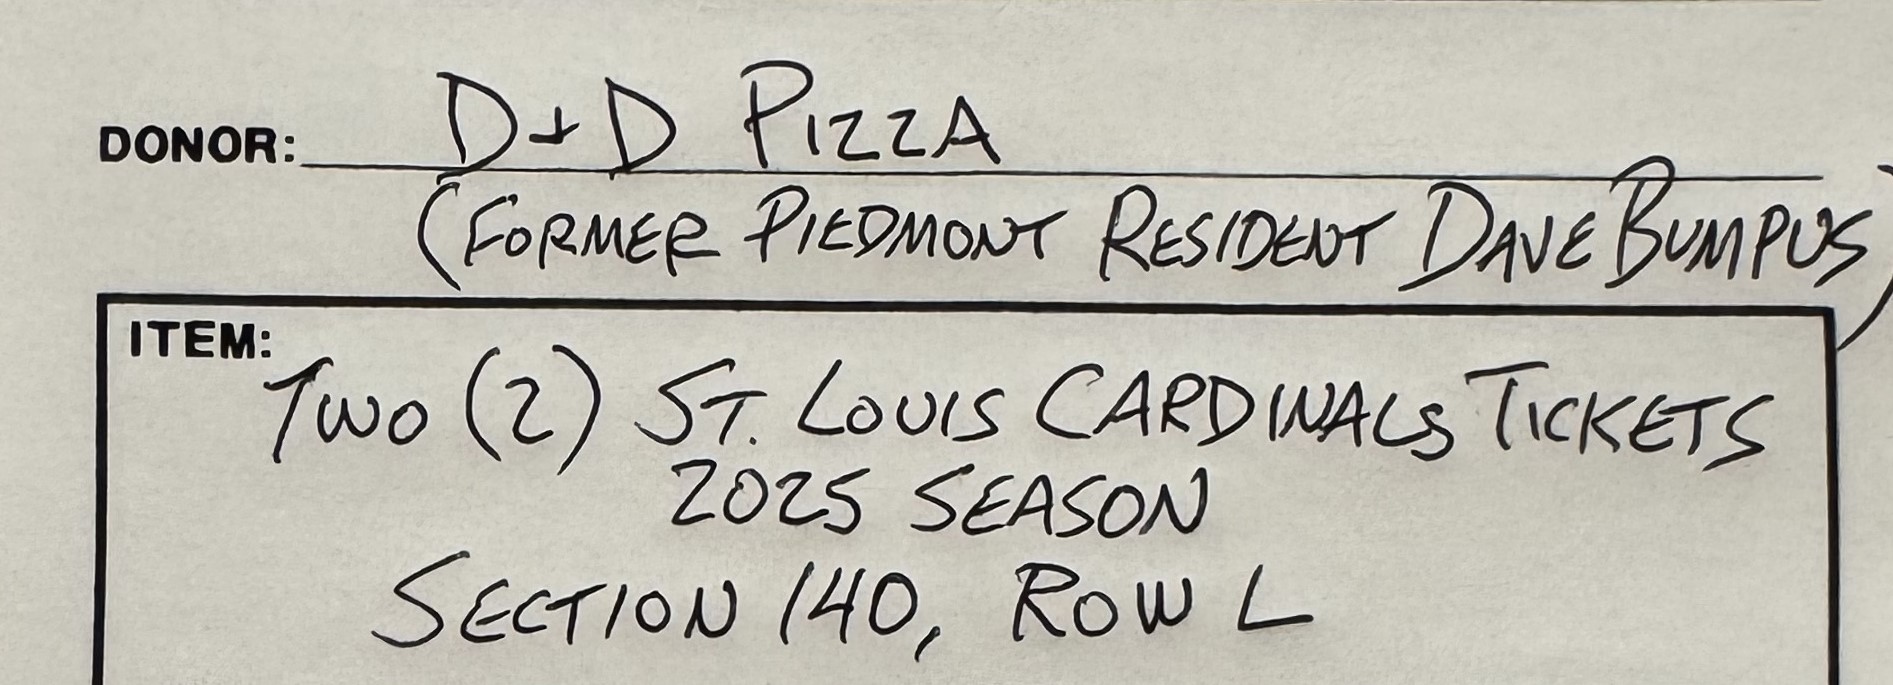 DONOR: D+D PIZZA
(FORMER PIEDMONT RESIDENT DAVE BUMPUS)
ITEM:
TWO (2) ST. LOUIS CARDINALS TICKETS
2025 SEASON
SECTION 140, ROW L